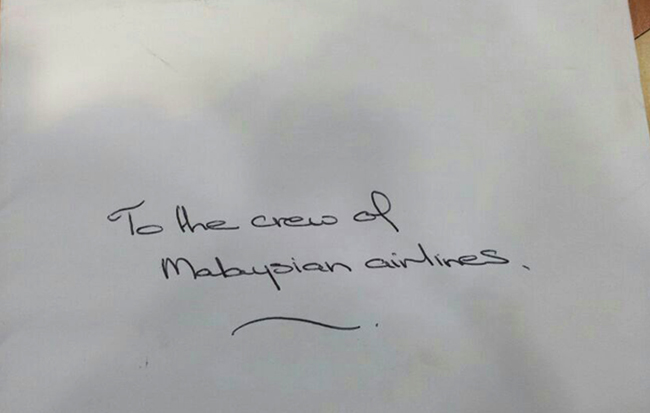 To the crew of
Malaysian airlines.